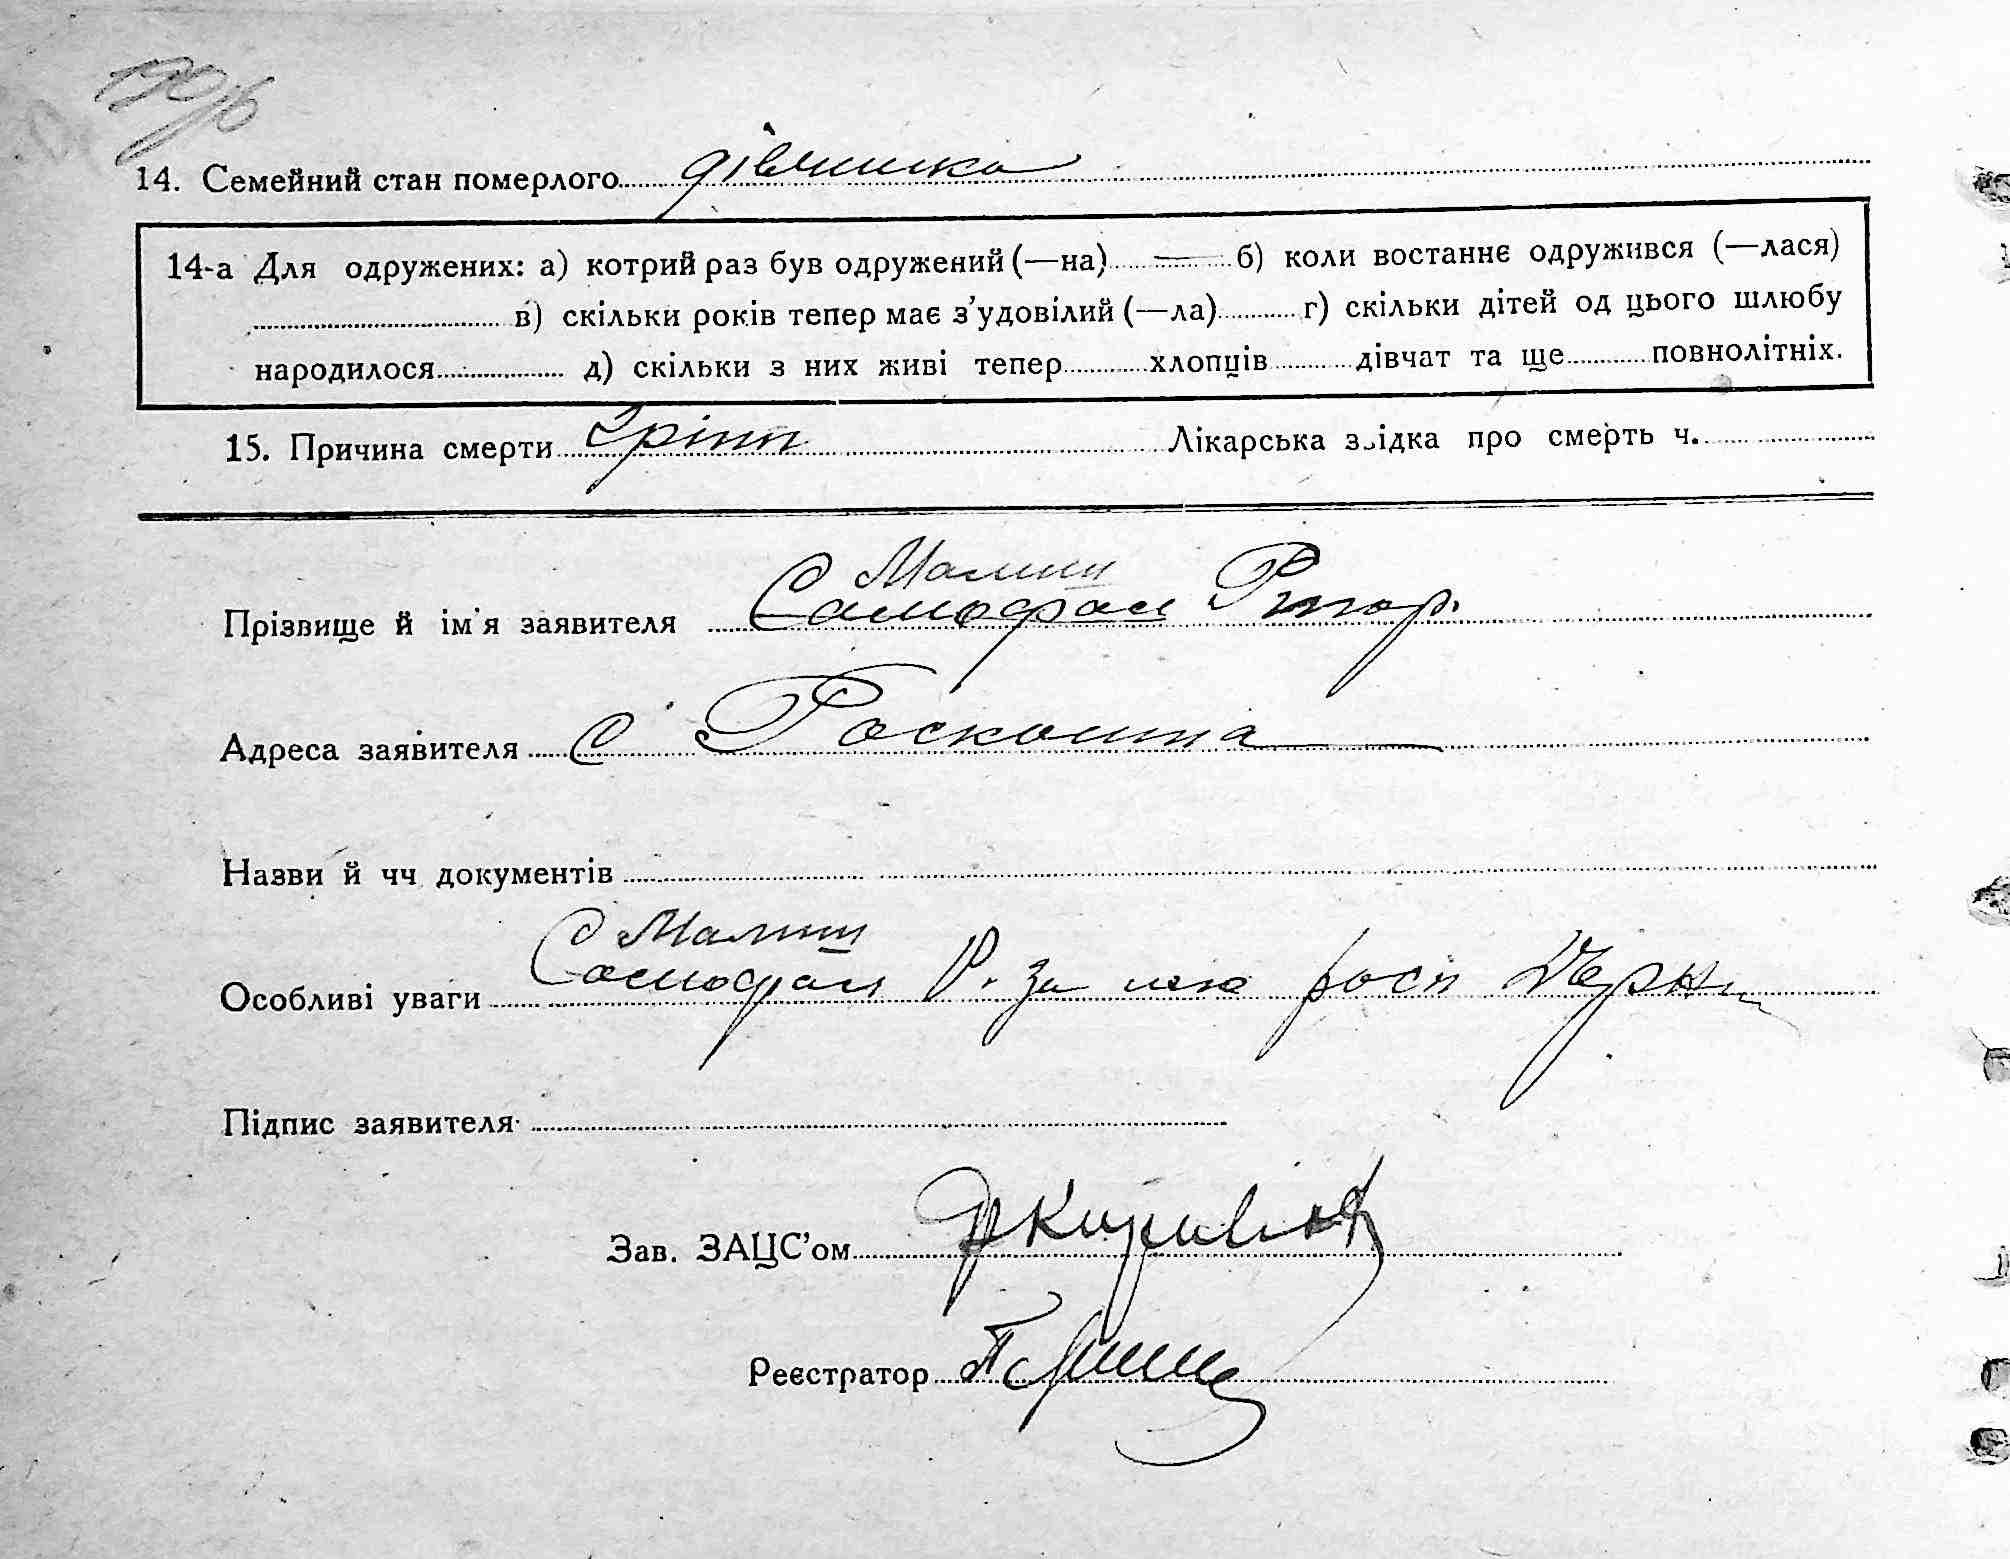 14. Семейний стан померлого дівчинка
14-а Для одружених: а) котрий раз був одружений (—на) б) коли востаннє одружився (—лася)
в) скільки років тепер має з'удовілий (—ла) г) скільки дітей од цього шлюбу
народилося д) скільки з них живі тепер хлопців дівчат та ще повнолітніх.
15. Причина смерти Грипп Лікарська звідка про смерть ч.
Малий
Прізвище й ім'я заявителя Самофал Григор.
Адреса заявителя С Роскошна
Назви й чч документів
Малий
Особливі уваги Самофал Р. За нею росп
Підпис заявителя
Зав. ЗАЦС'ом
Реєстратор